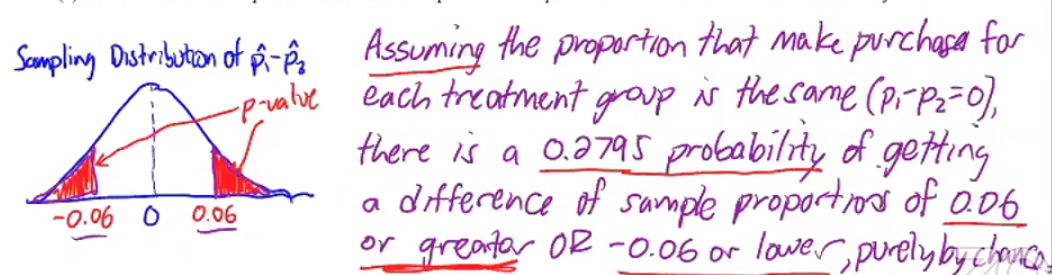 Sampling Distribution of p̂₁-p̂₂
p-value
-0.06 0 0.06
Assuming the proportion that make purchase for
each treatment group is the same (p₁-p₂=0),
there is a 0.2795 probability of getting
a difference of sample proportions of 0.06
or greater OR -0.06 or lower, purely by chance.